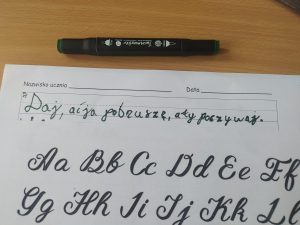 Nazwisko ucznia Data
Daj, ać ja pobruszę, a ty poczywaj.
Aa Bb Cc Dd Ee Ff
Gg Hh Ii Jj Kk Ll